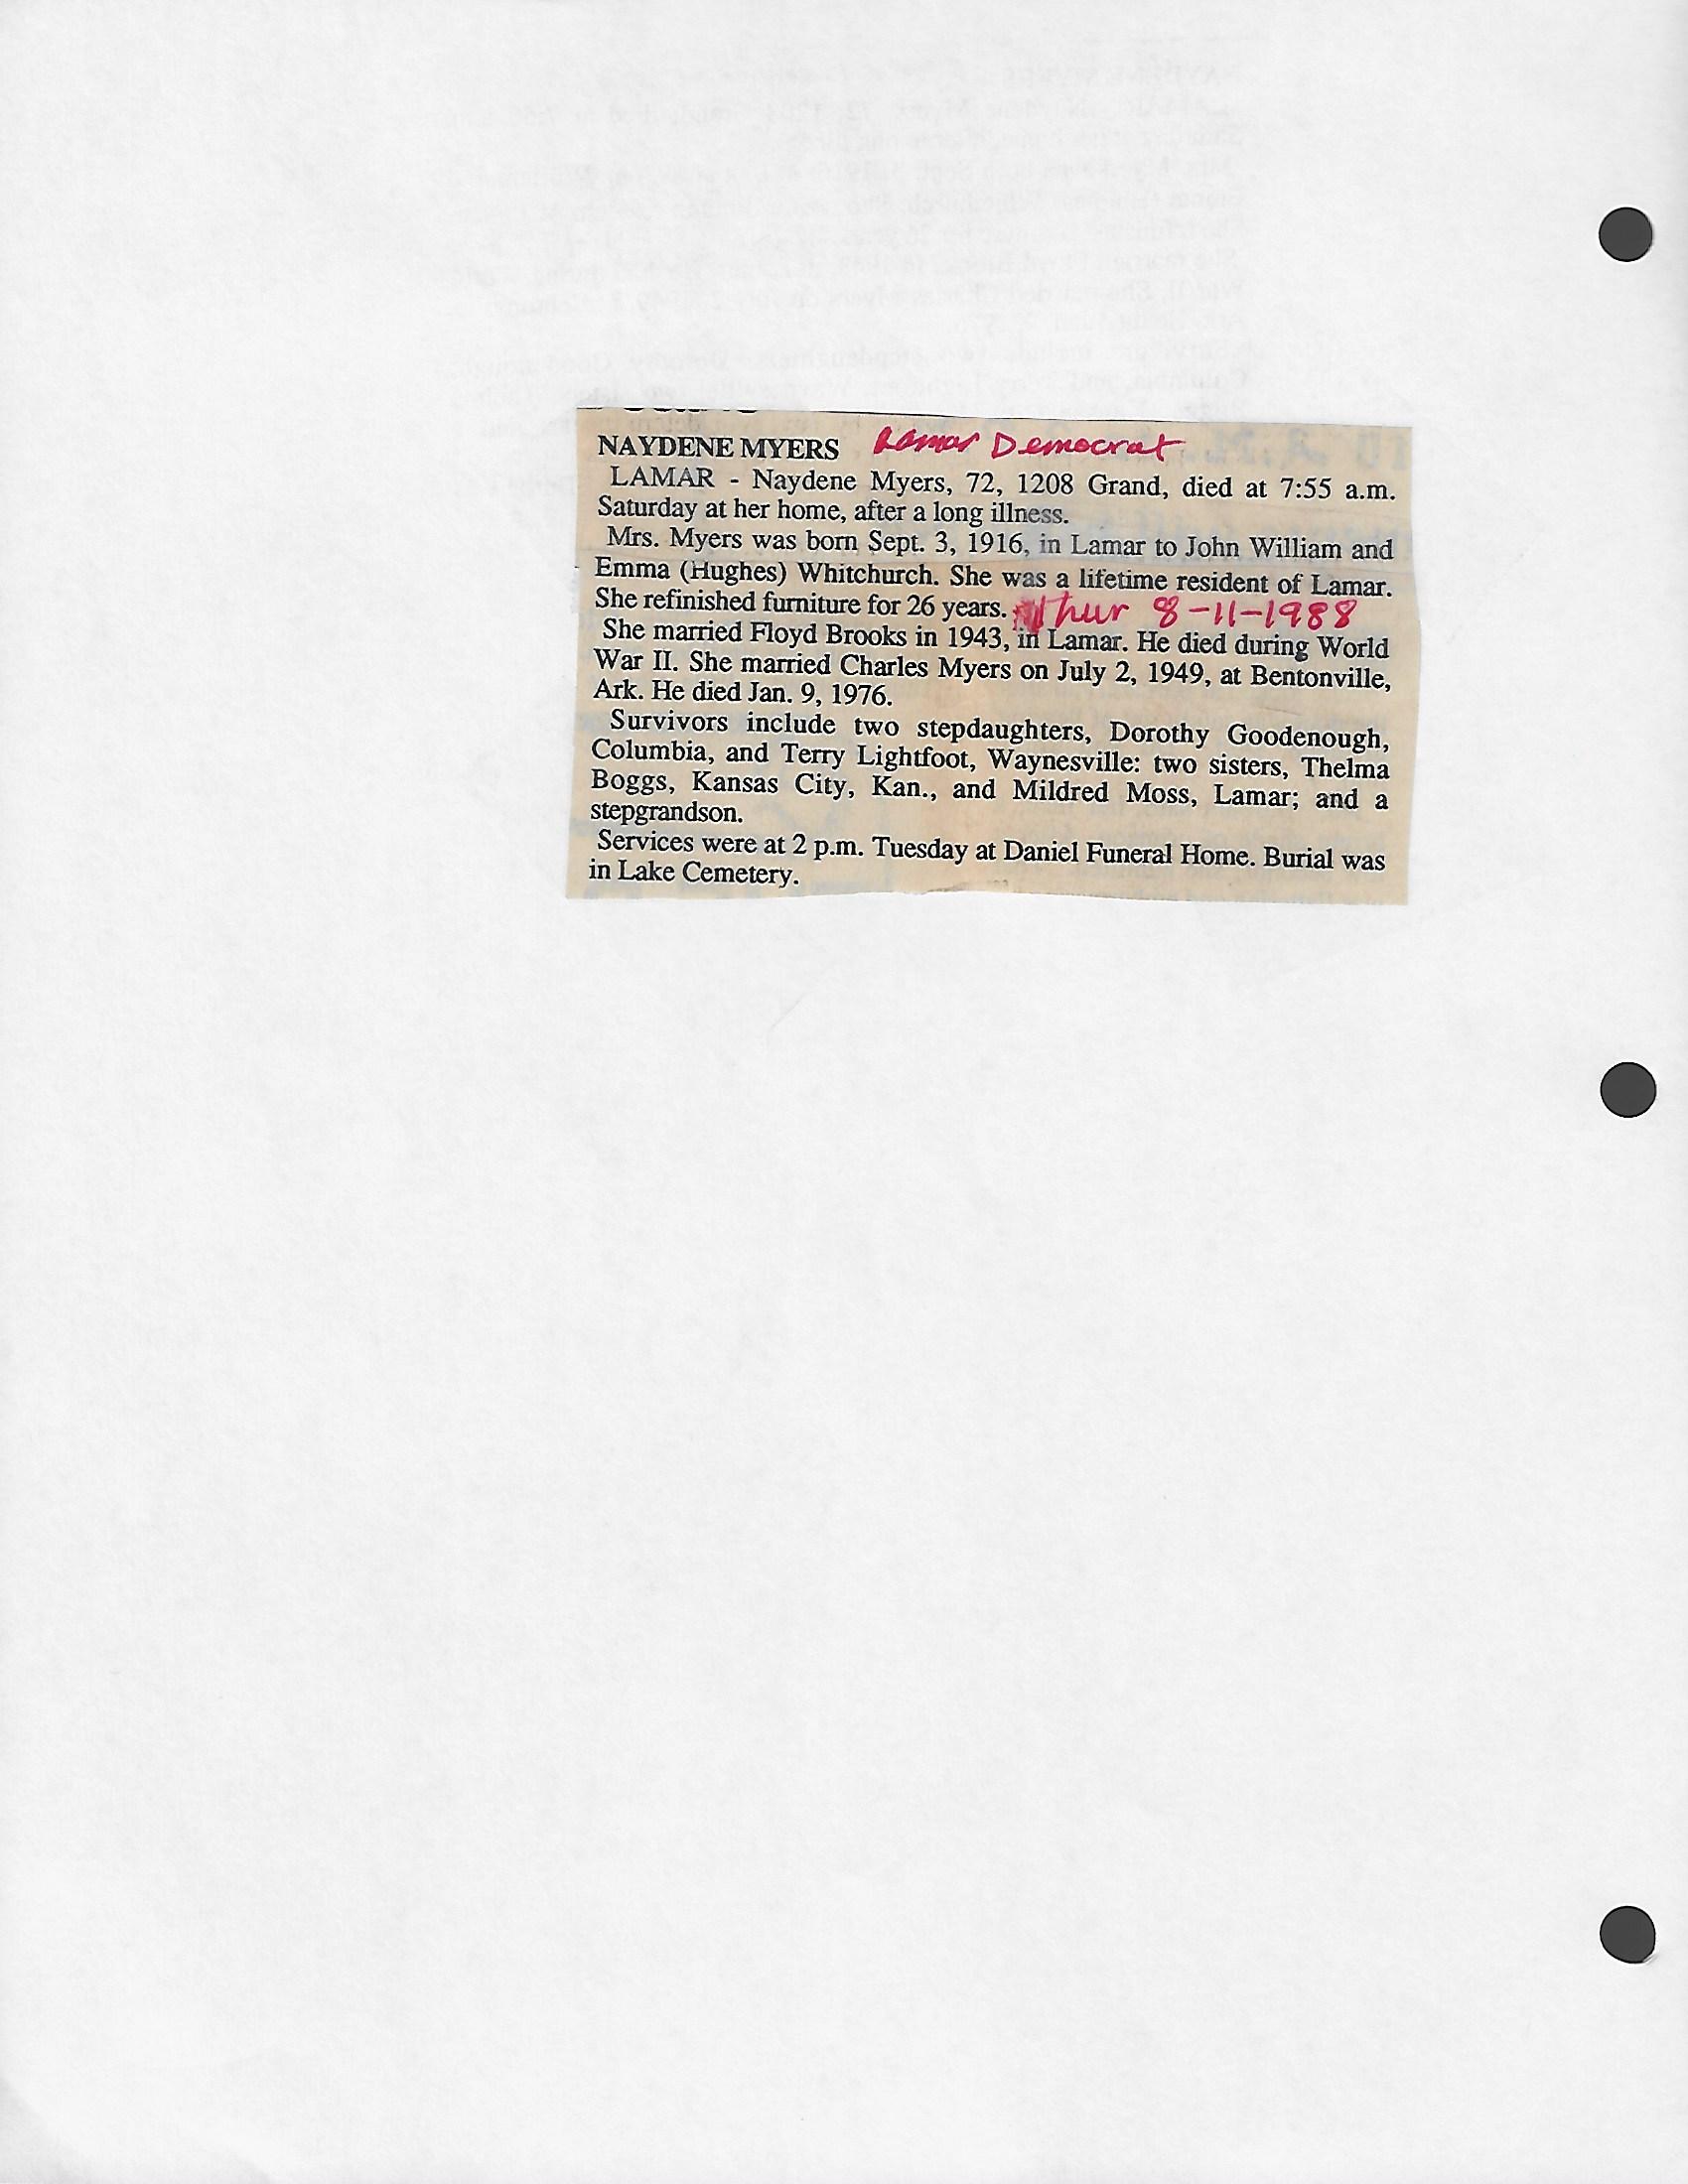 NAYDENE MYERS Lamar Democrat
LAMAR - Naydene Myers, 72, 1208 Grand, died at 7:55 a.m.
Saturday at her home, after a long illness.
Mrs. Myers was born Sept. 3, 1916, in Lamar to John William and
Emma (Hughes) Whitchurch. She was a lifetime resident of Lamar.
She refinished furniture for 26 years. Thur 8-11-1988
She married Floyd Brooks in 1943, in Lamar. He died during World
War II. She married Charles Myers on July 2, 1949, at Bentonville,
Ark. He died Jan. 9, 1976.
Survivors include two stepdaughters, Dorothy Goodenough,
Columbia, and Terry Lightfoot, Waynesville: two sisters, Thelma
Boggs, Kansas City, Kan., and Mildred Moss, Lamar; and a
stepgrandson.
Services were at 2 p.m. Tuesday at Daniel Funeral Home. Burial was
in Lake Cemetery.